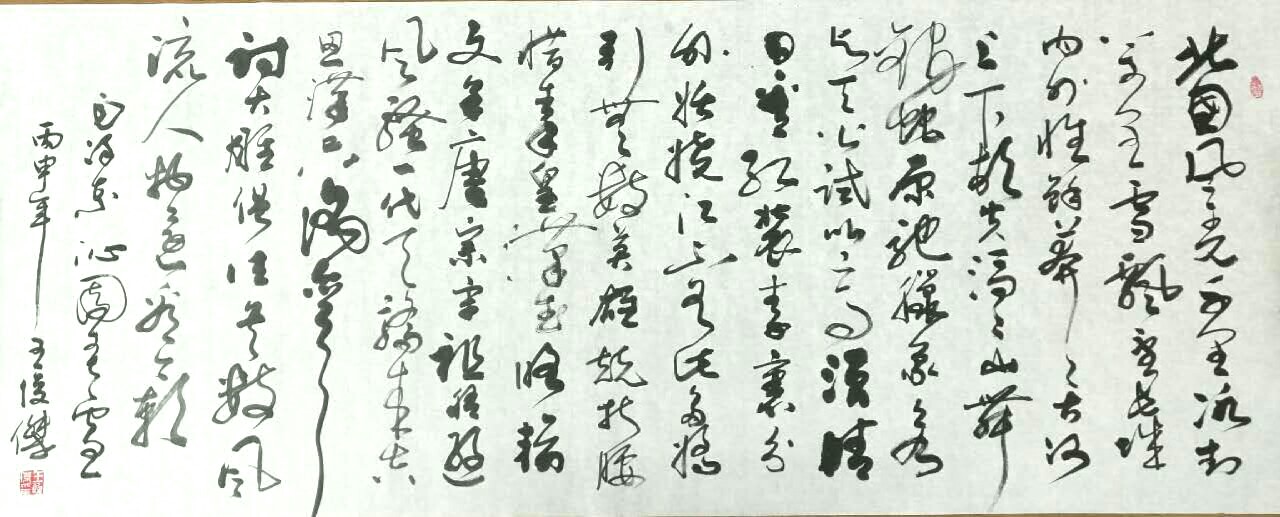 北國风光千里冰封
万里雪飄望长城
内外惟餘莽〻大河
上下顿失滔〻山舞
銀蛇原馳臘象欲
与天公試比高須晴
日看红装素裹分
外妖娆江山如此多娇
引無数英雄競折腰
惜秦皇漢武略输
文采唐宗宋祖稍逊
风騷一代天骄成吉
思汗只識弯弓
射大雕俱往矣数风
流人物还看今朝
毛泽东沁園春雪
丙申年王俊傑